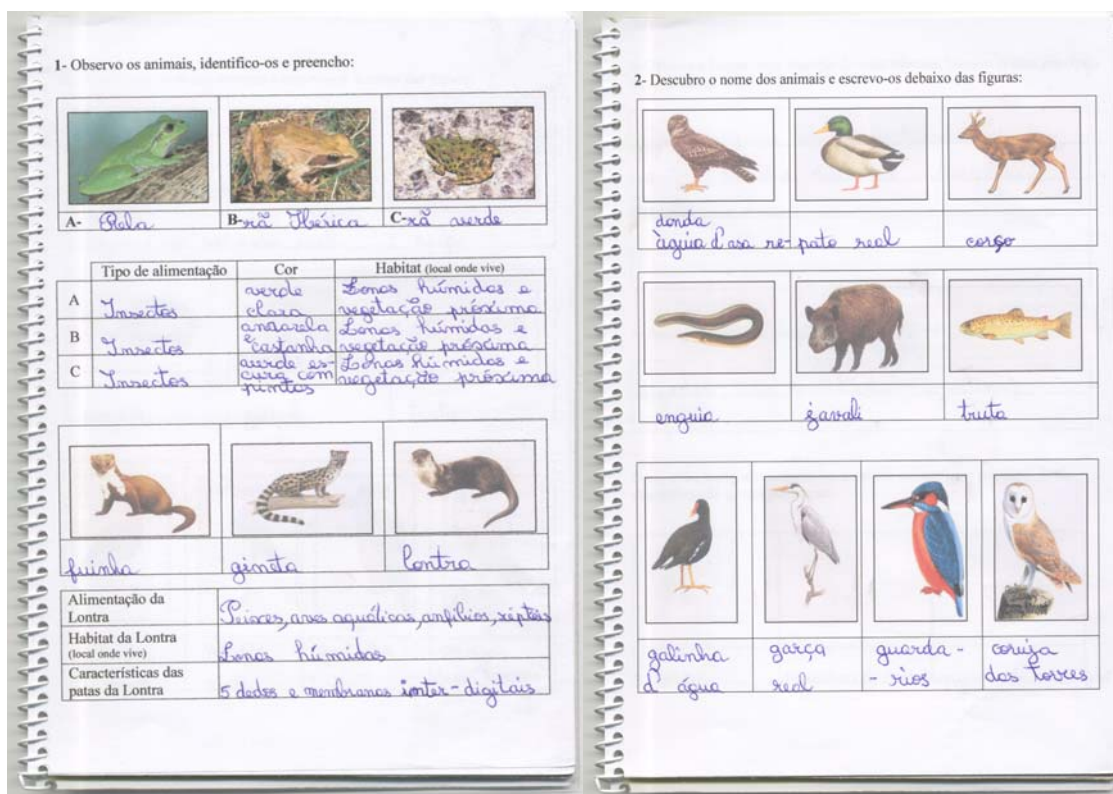 1- Observo os animais, identifico-os e preencho:
A- Rela
B- rã Ibérica
C- rã verde
Tipo de alimentação Cor Habitat (local onde vive)
A Insectos verde clara Zonas húmidas e vegetação próxima
B Insectos amarela e castanha Zonas húmidas e vegetação próxima
C Insectos verde escura com pintas Zonas húmidas e vegetação próxima
fuinha gineta lontra
Alimentação da Lontra Peixes, aves aquáticas, anfíbios, répteis
Habitat da Lontra (local onde vive) Zonas húmidas
Características das patas da Lontra 5 dedos e membranas inter-digitais
2- Descubro o nome dos animais e escrevo-os debaixo das figuras:
donda
àguia d'asa re- pato real corço
enguia javali truta
galinha garça guarda- coruja
d'água real -rios das torres